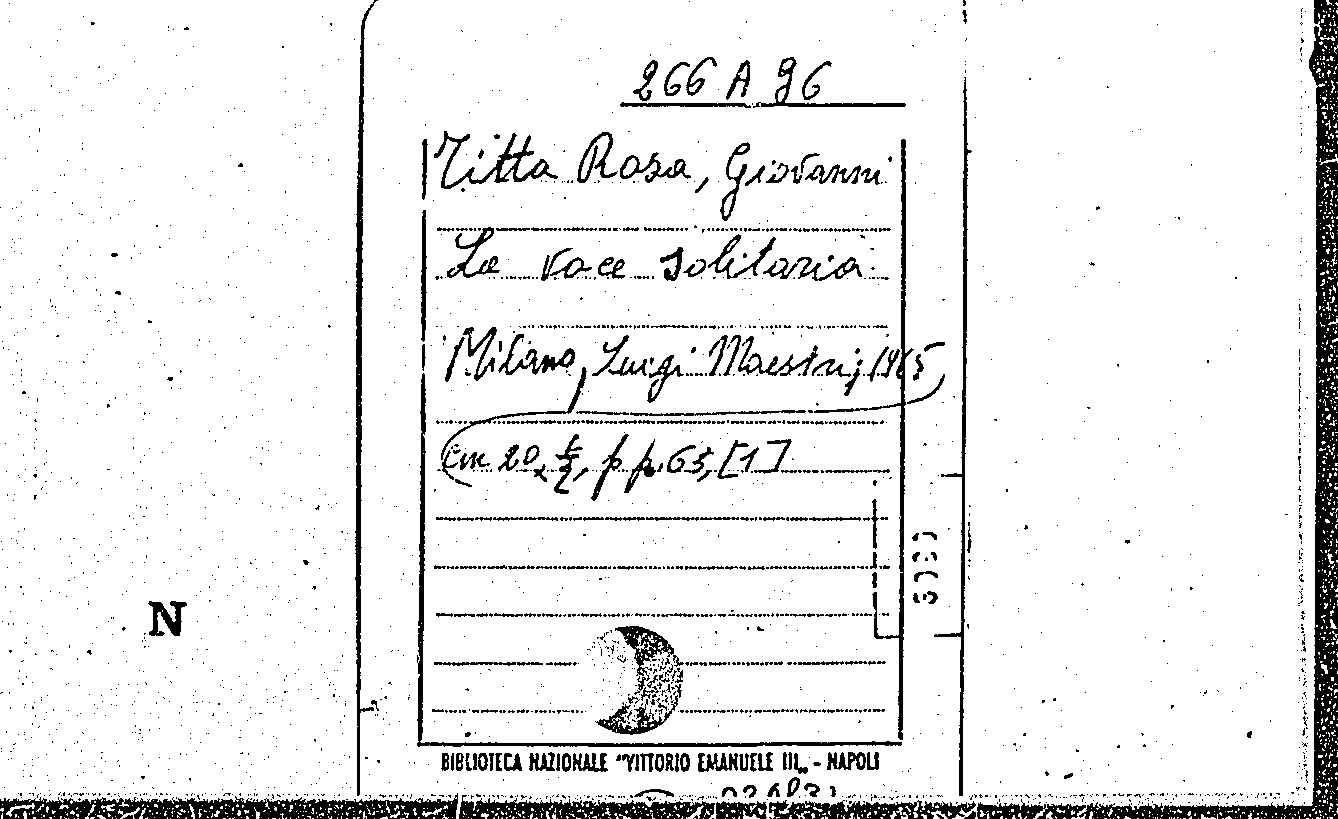 266 A 96
Titta Rosa, Giovanni
La voce solitaria
Milano, Luigi Maestri, 1965
cm 20,½, pp. 63, [1]
N
BIBLIOTECA NAZIONALE "VITTORIO EMANUELE III„ - NAPOLI